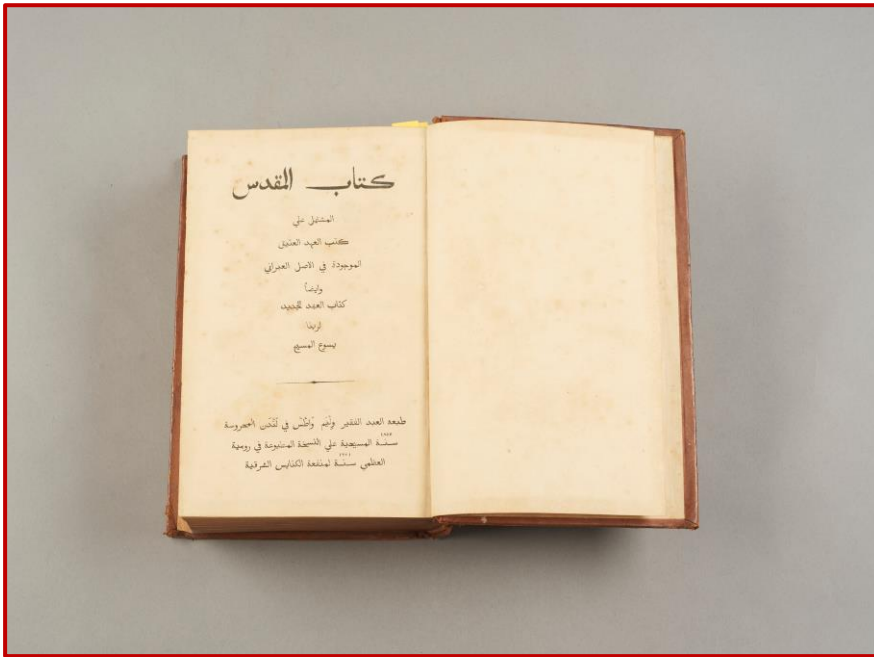 كتاب المقدس
المشتمل علي
كتب العهد العتيق
الموجودة في الاصل العبراني
وايضاً
كتاب العهد الجديد
لربنا
يسوع المسيح
طبعه العبد الفقير وليم واطس في لندن المحروسة
سنة المسيحية علي النسخة المطبوعة في رومية
العظمي سنة ١٦٧١ لمنفعة الكنايس الشرقية